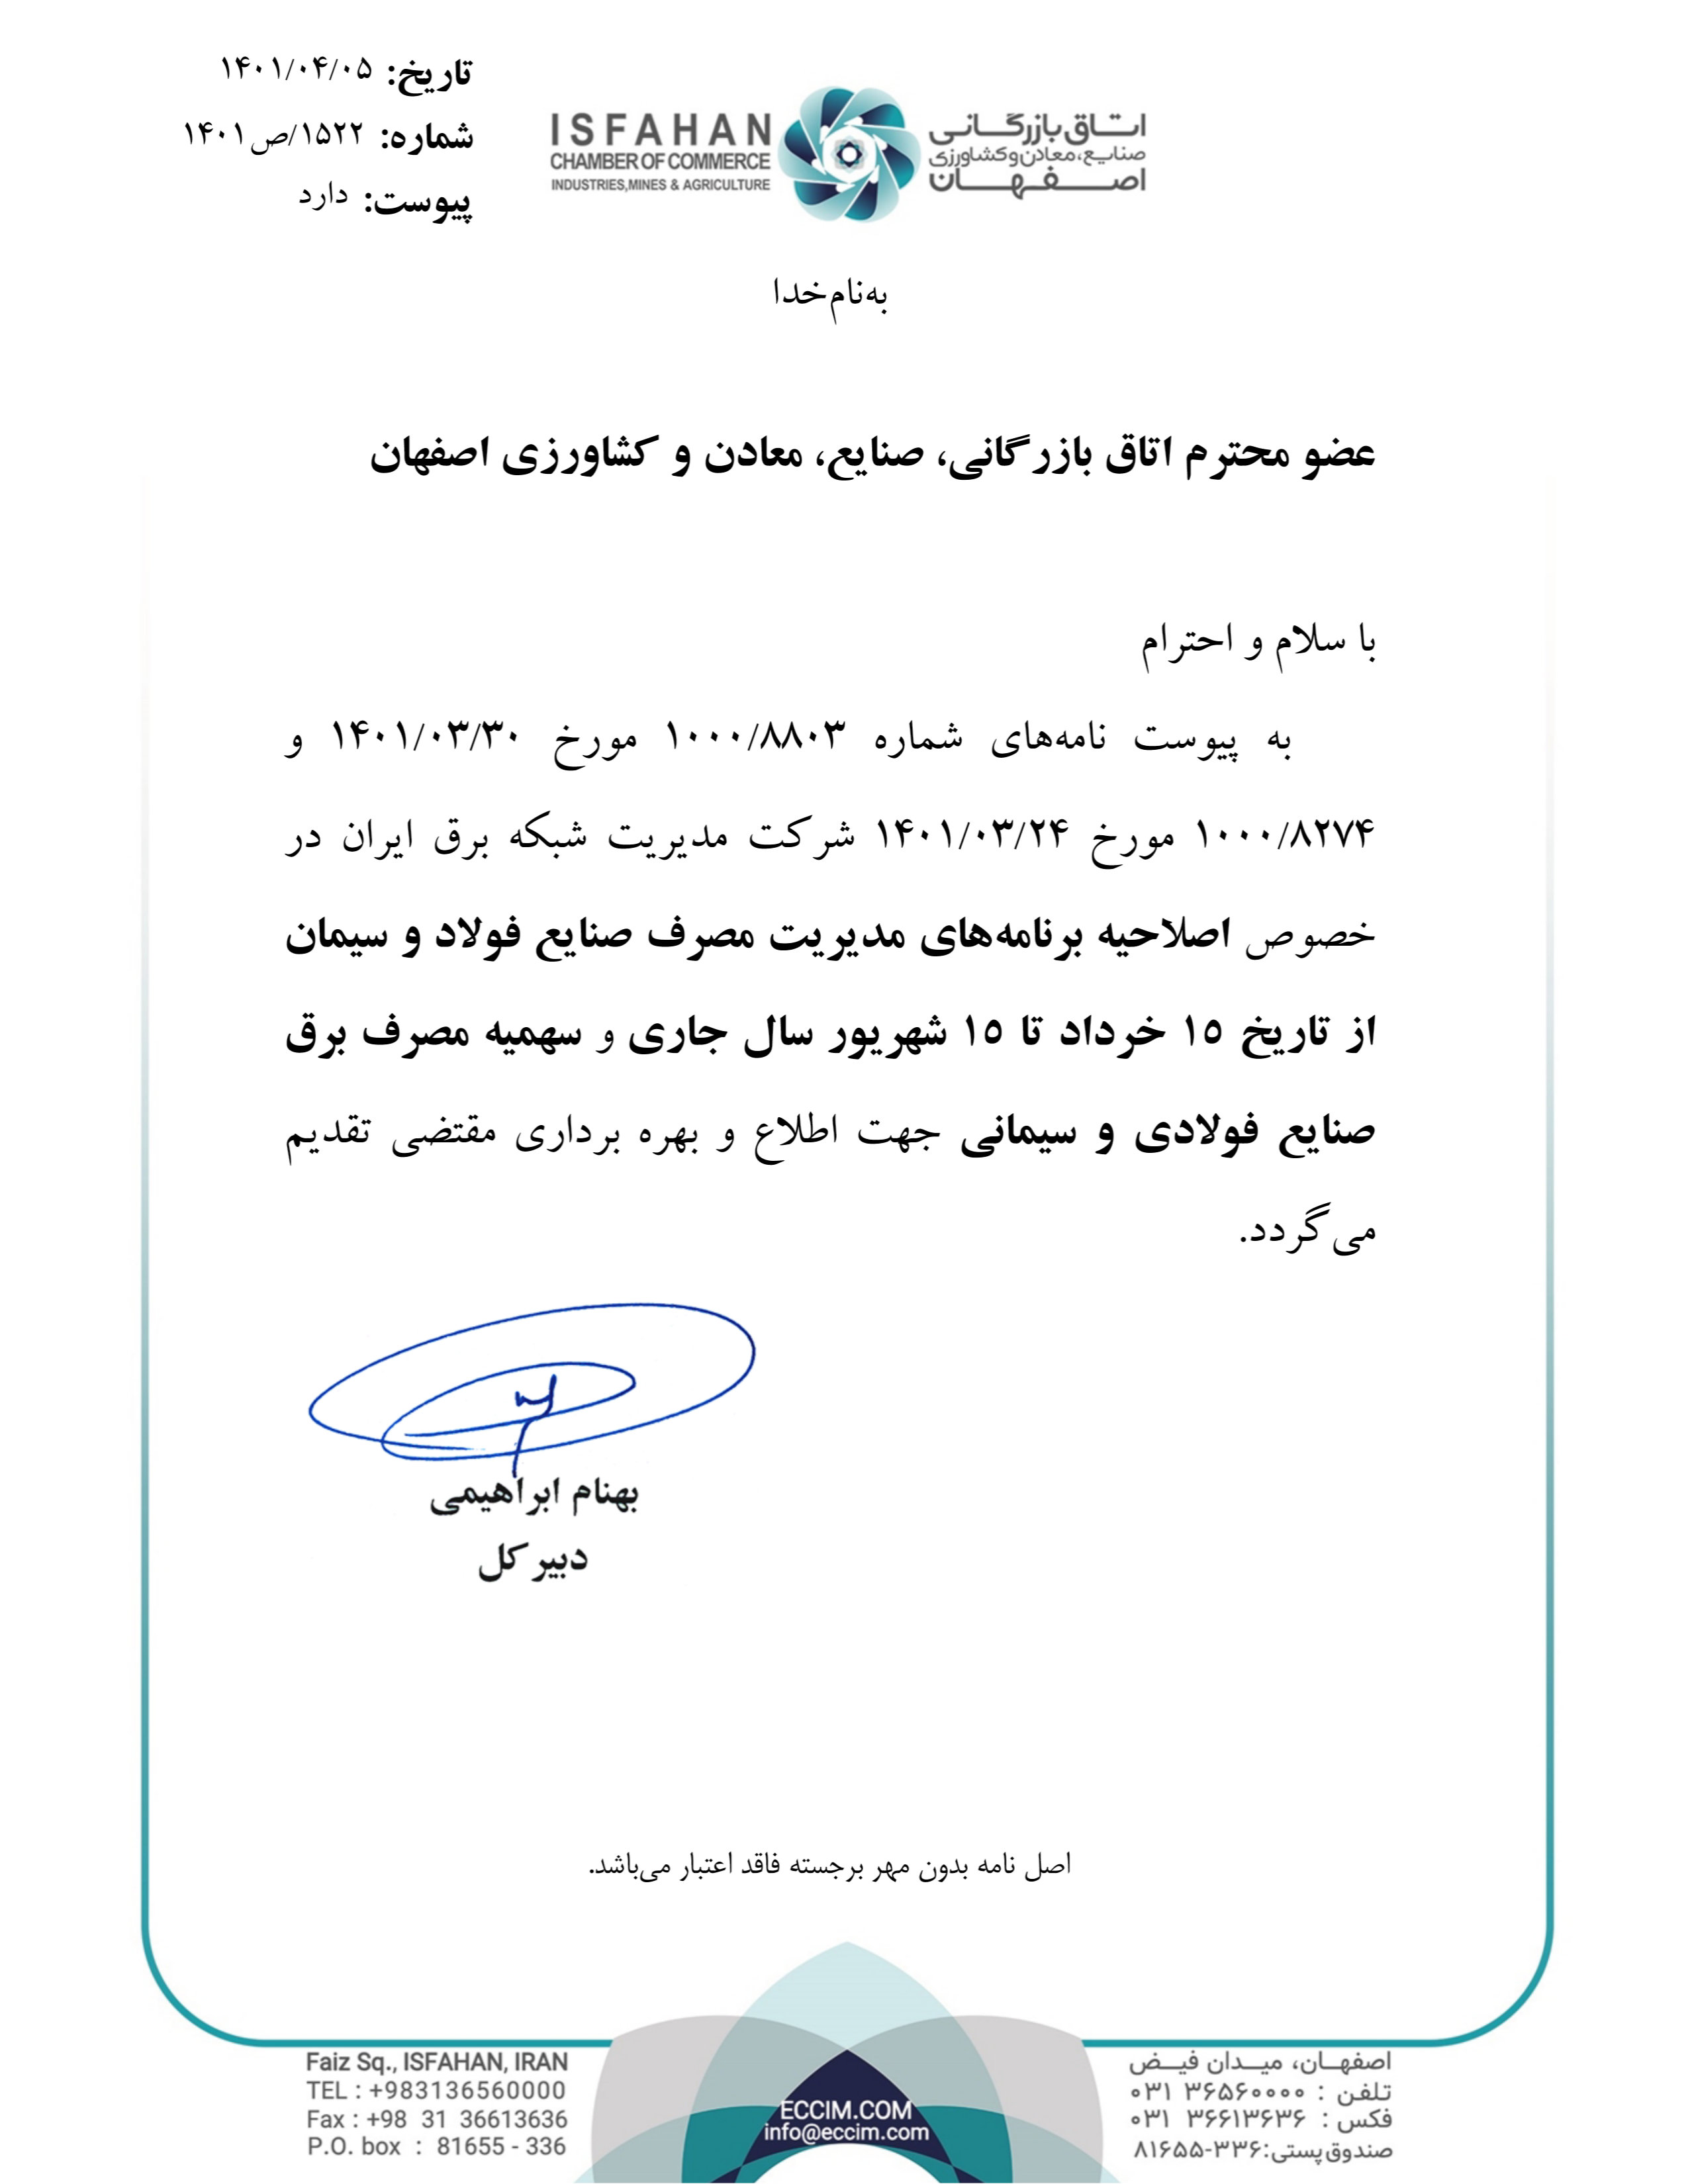 تاریخ: ۱۴۰۱/۰۴/۰۵
شماره: ۱۵۲۲/ص۱۴۰۱
پیوست: دارد
ISFAHAN
CHAMBER OF COMMERCE
INDUSTRIES,MINES & AGRICULTURE
اتــاق بازرگــانــی
صنایع، معادن و کشاورزی
اصــفــهــان
به‌نام‌خدا
عضو محترم اتاق بازرگانی، صنایع، معادن و کشاورزی اصفهان
با سلام و احترام
به پیوست نامه‌های شماره ۱۰۰۰/۸۸۰۳ مورخ ۱۴۰۱/۰۳/۳۰ و
۱۰۰۰/۸۲۷۴ مورخ ۱۴۰۱/۰۳/۲۴ شرکت مدیریت شبکه برق ایران در
خصوص اصلاحیه برنامه‌های مدیریت مصرف صنایع فولاد و سیمان
از تاریخ ۱۵ خرداد تا ۱۵ شهریور سال جاری و سهمیه مصرف برق
صنایع فولادی و سیمانی جهت اطلاع و بهره برداری مقتضی تقدیم
می‌گردد.
بهنام ابراهیمی
دبیرکل
اصل نامه بدون مهر برجسته فاقد اعتبار می‌باشد.
اصفهــان، میــدان فیــض
تلفن : ۰۳۱ ۳۶۵۶۰۰۰۰
فکس : ۰۳۱ ۳۶۶۱۳۶۳۶
صندوق پستی:۸۱۶۵۵-۳۳۶
ECCIM.COM
info@eccim.com
Faiz Sq., ISFAHAN, IRAN
TEL : +983136560000
Fax : +98 31 36613636
P.O. box : 81655 - 336